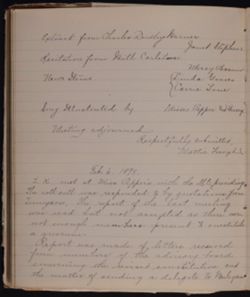 Extract from Charles Dudley Warner
Janet Stephens
Recitation from Will Carleton
News Items
Linda
Carrie
Song Illustrated by Misses Pepper
Meeting adjourned.
Respectfully submitted,
Feb 6. 1898
met at Miss Pepper's with the
The roll call was responded to by quotations from
Tennyson. The report of the last meeting
was read but not accepted as there were
not enough members present to constitute
a quorum.
Report was made of letters received
from members of the advisory board
concerning the revised constitution and
the matter of sending a delegate to